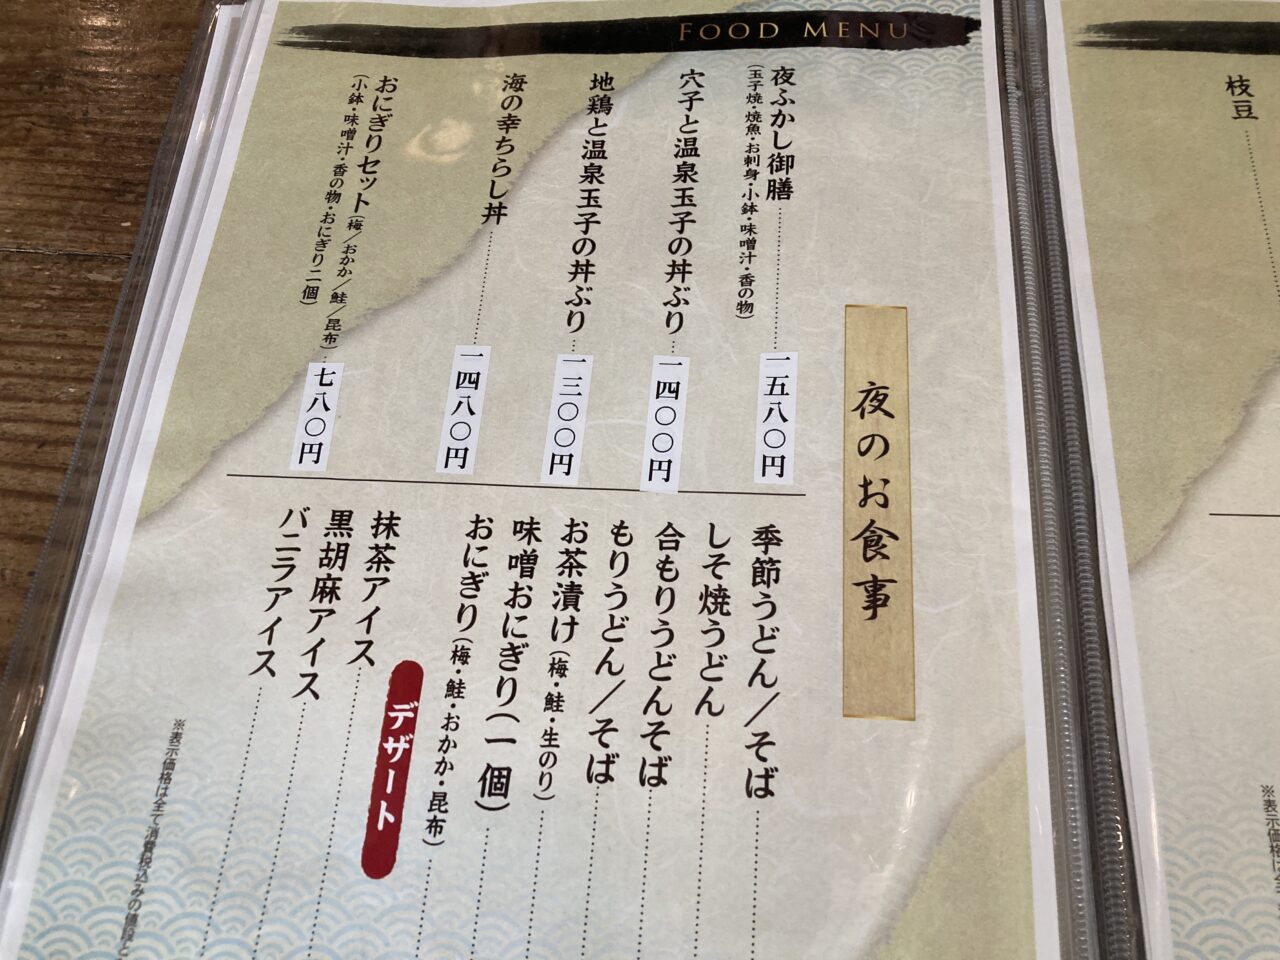 FOOD MENU
夜のお食事
夜ふかし御膳
(玉子焼・焼魚・お刺身・小鉢・味噌汁・香の物)
一五八〇円
穴子と温泉玉子の丼ぶり
一四〇〇円
地鶏と温泉玉子の丼ぶり
一三〇〇円
海の幸ちらし丼
一四八〇円
おにぎりセット(梅／おかか／鮭／昆布)
(小鉢・味噌汁・香の物・おにぎり二個)
七八〇円
季節うどん／そば
しそ焼うどん
合もりうどんそば
もりうどん／そば
お茶漬け(梅・鮭・生のり)
味噌おにぎり(一個)
おにぎり(梅・鮭・おかか・昆布)
デザート
抹茶アイス
黒胡麻アイス
バニラアイス
※表示価格は全て消費税込みの値段と
枝豆
※表示価格は全